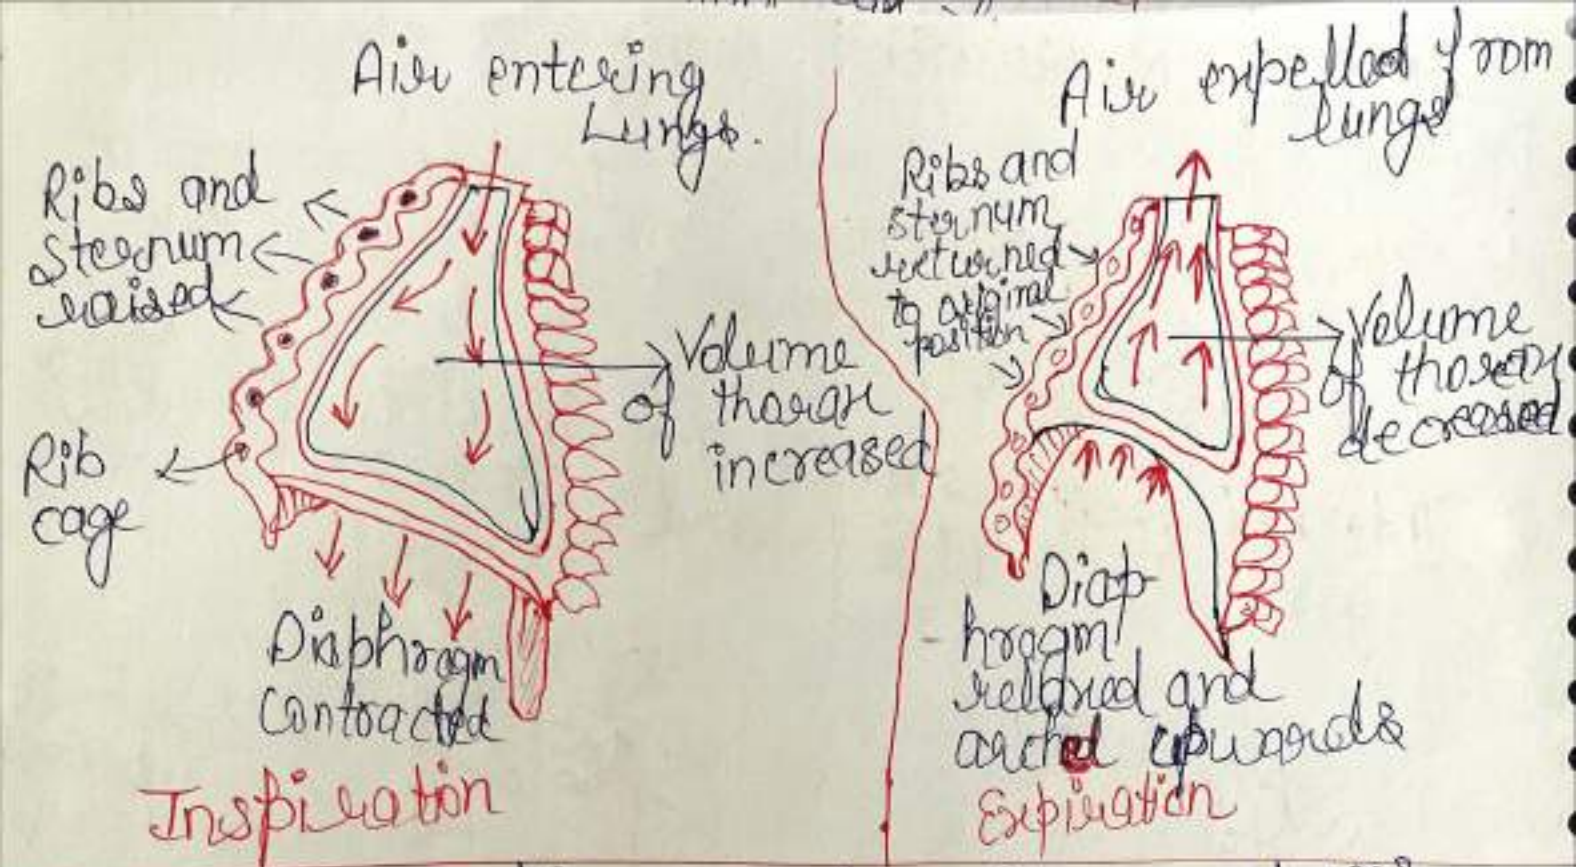 Air entering
Lungs.
Ribs and
sternum
raised
Rib
cage
Volume
of thorax
increased
Diaphragm
Contracted
Inspiration
Air expelled from
lungs
Ribs and
sternum
returned
to original
position
Volume
of thorax
decreased
Diap
hragm
relaxed and
arched upwards
Expiration